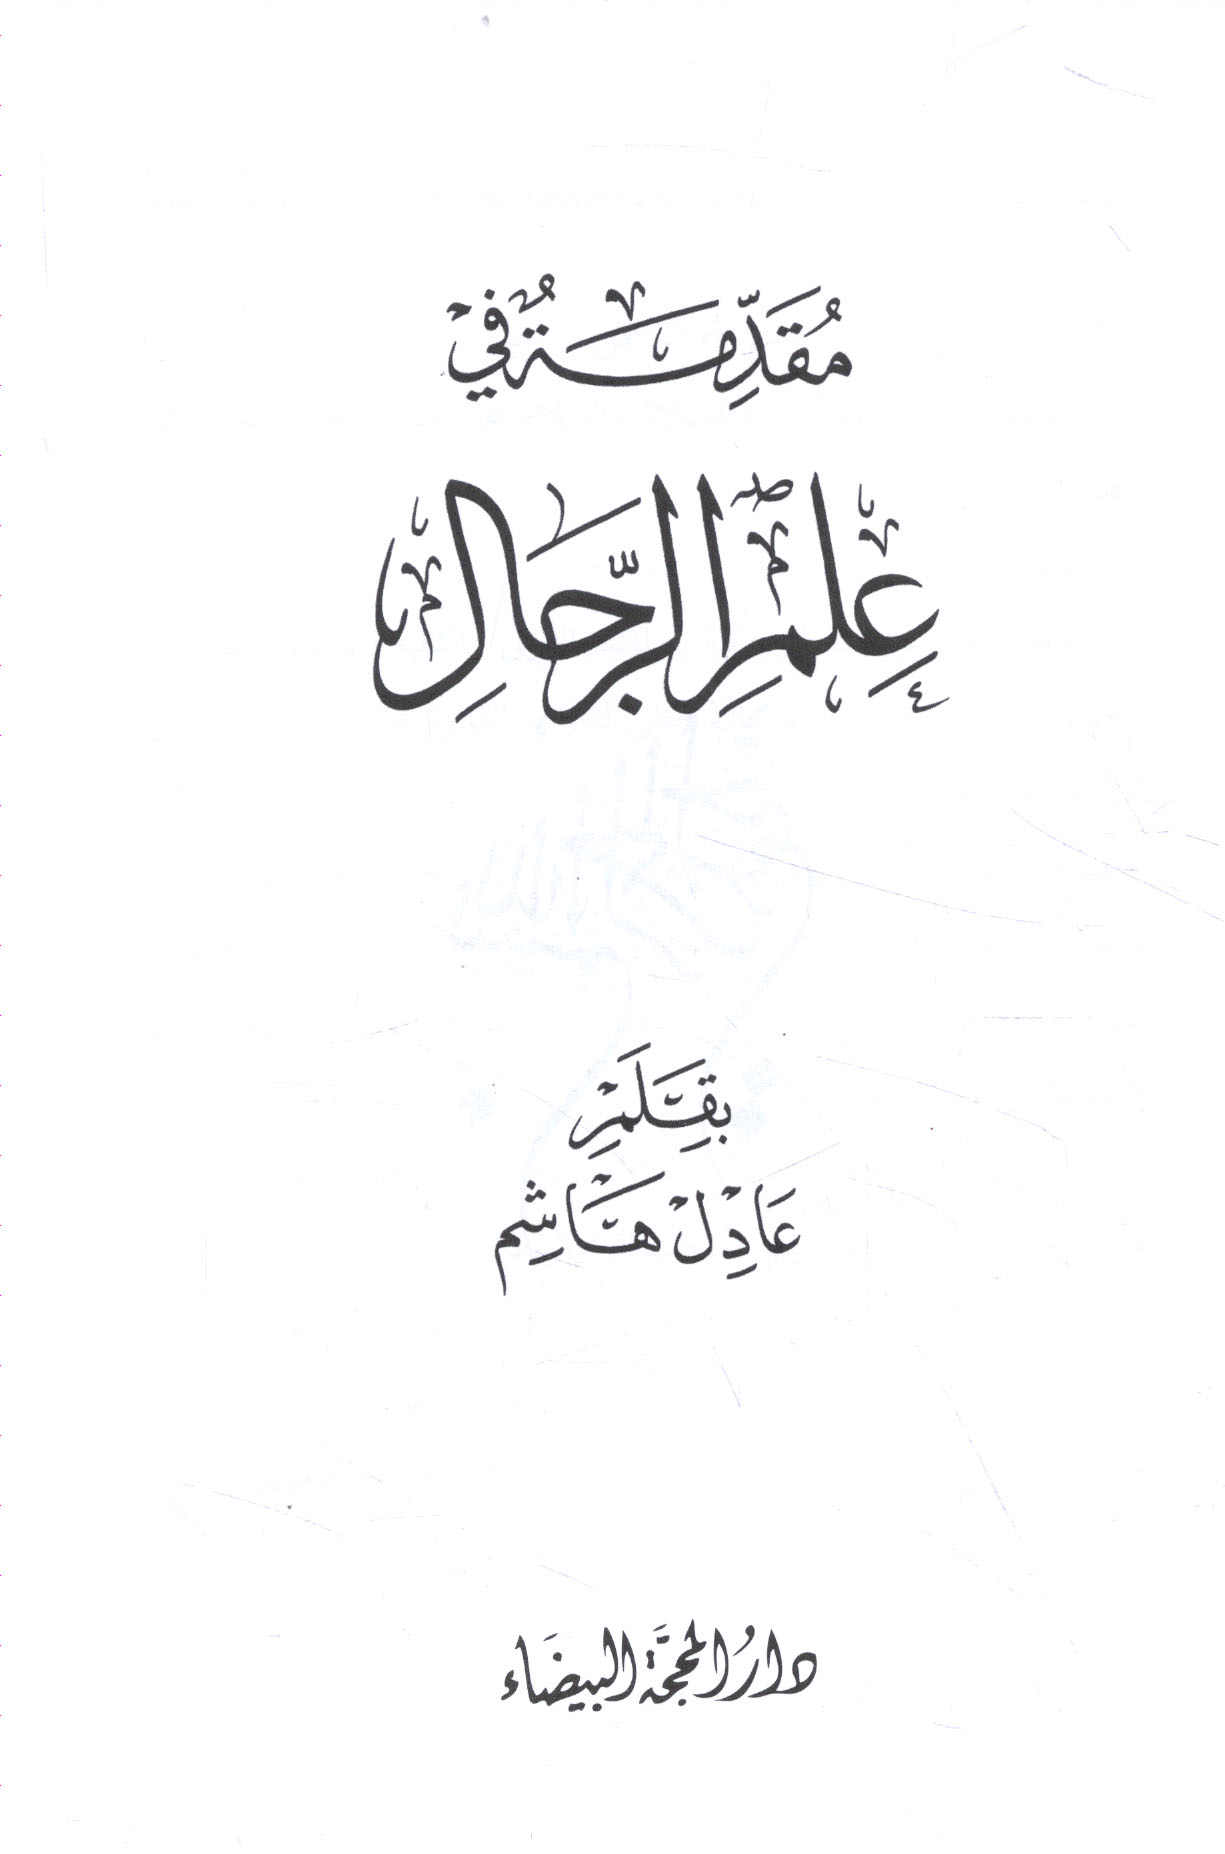 مُقَدِّمَةٌ فِي
عِلْمِ الرِّجَالِ
بِقَلَمِ
عَادِلْ هَاشِم
دَارُ المَحَجَّة البَيضَاء